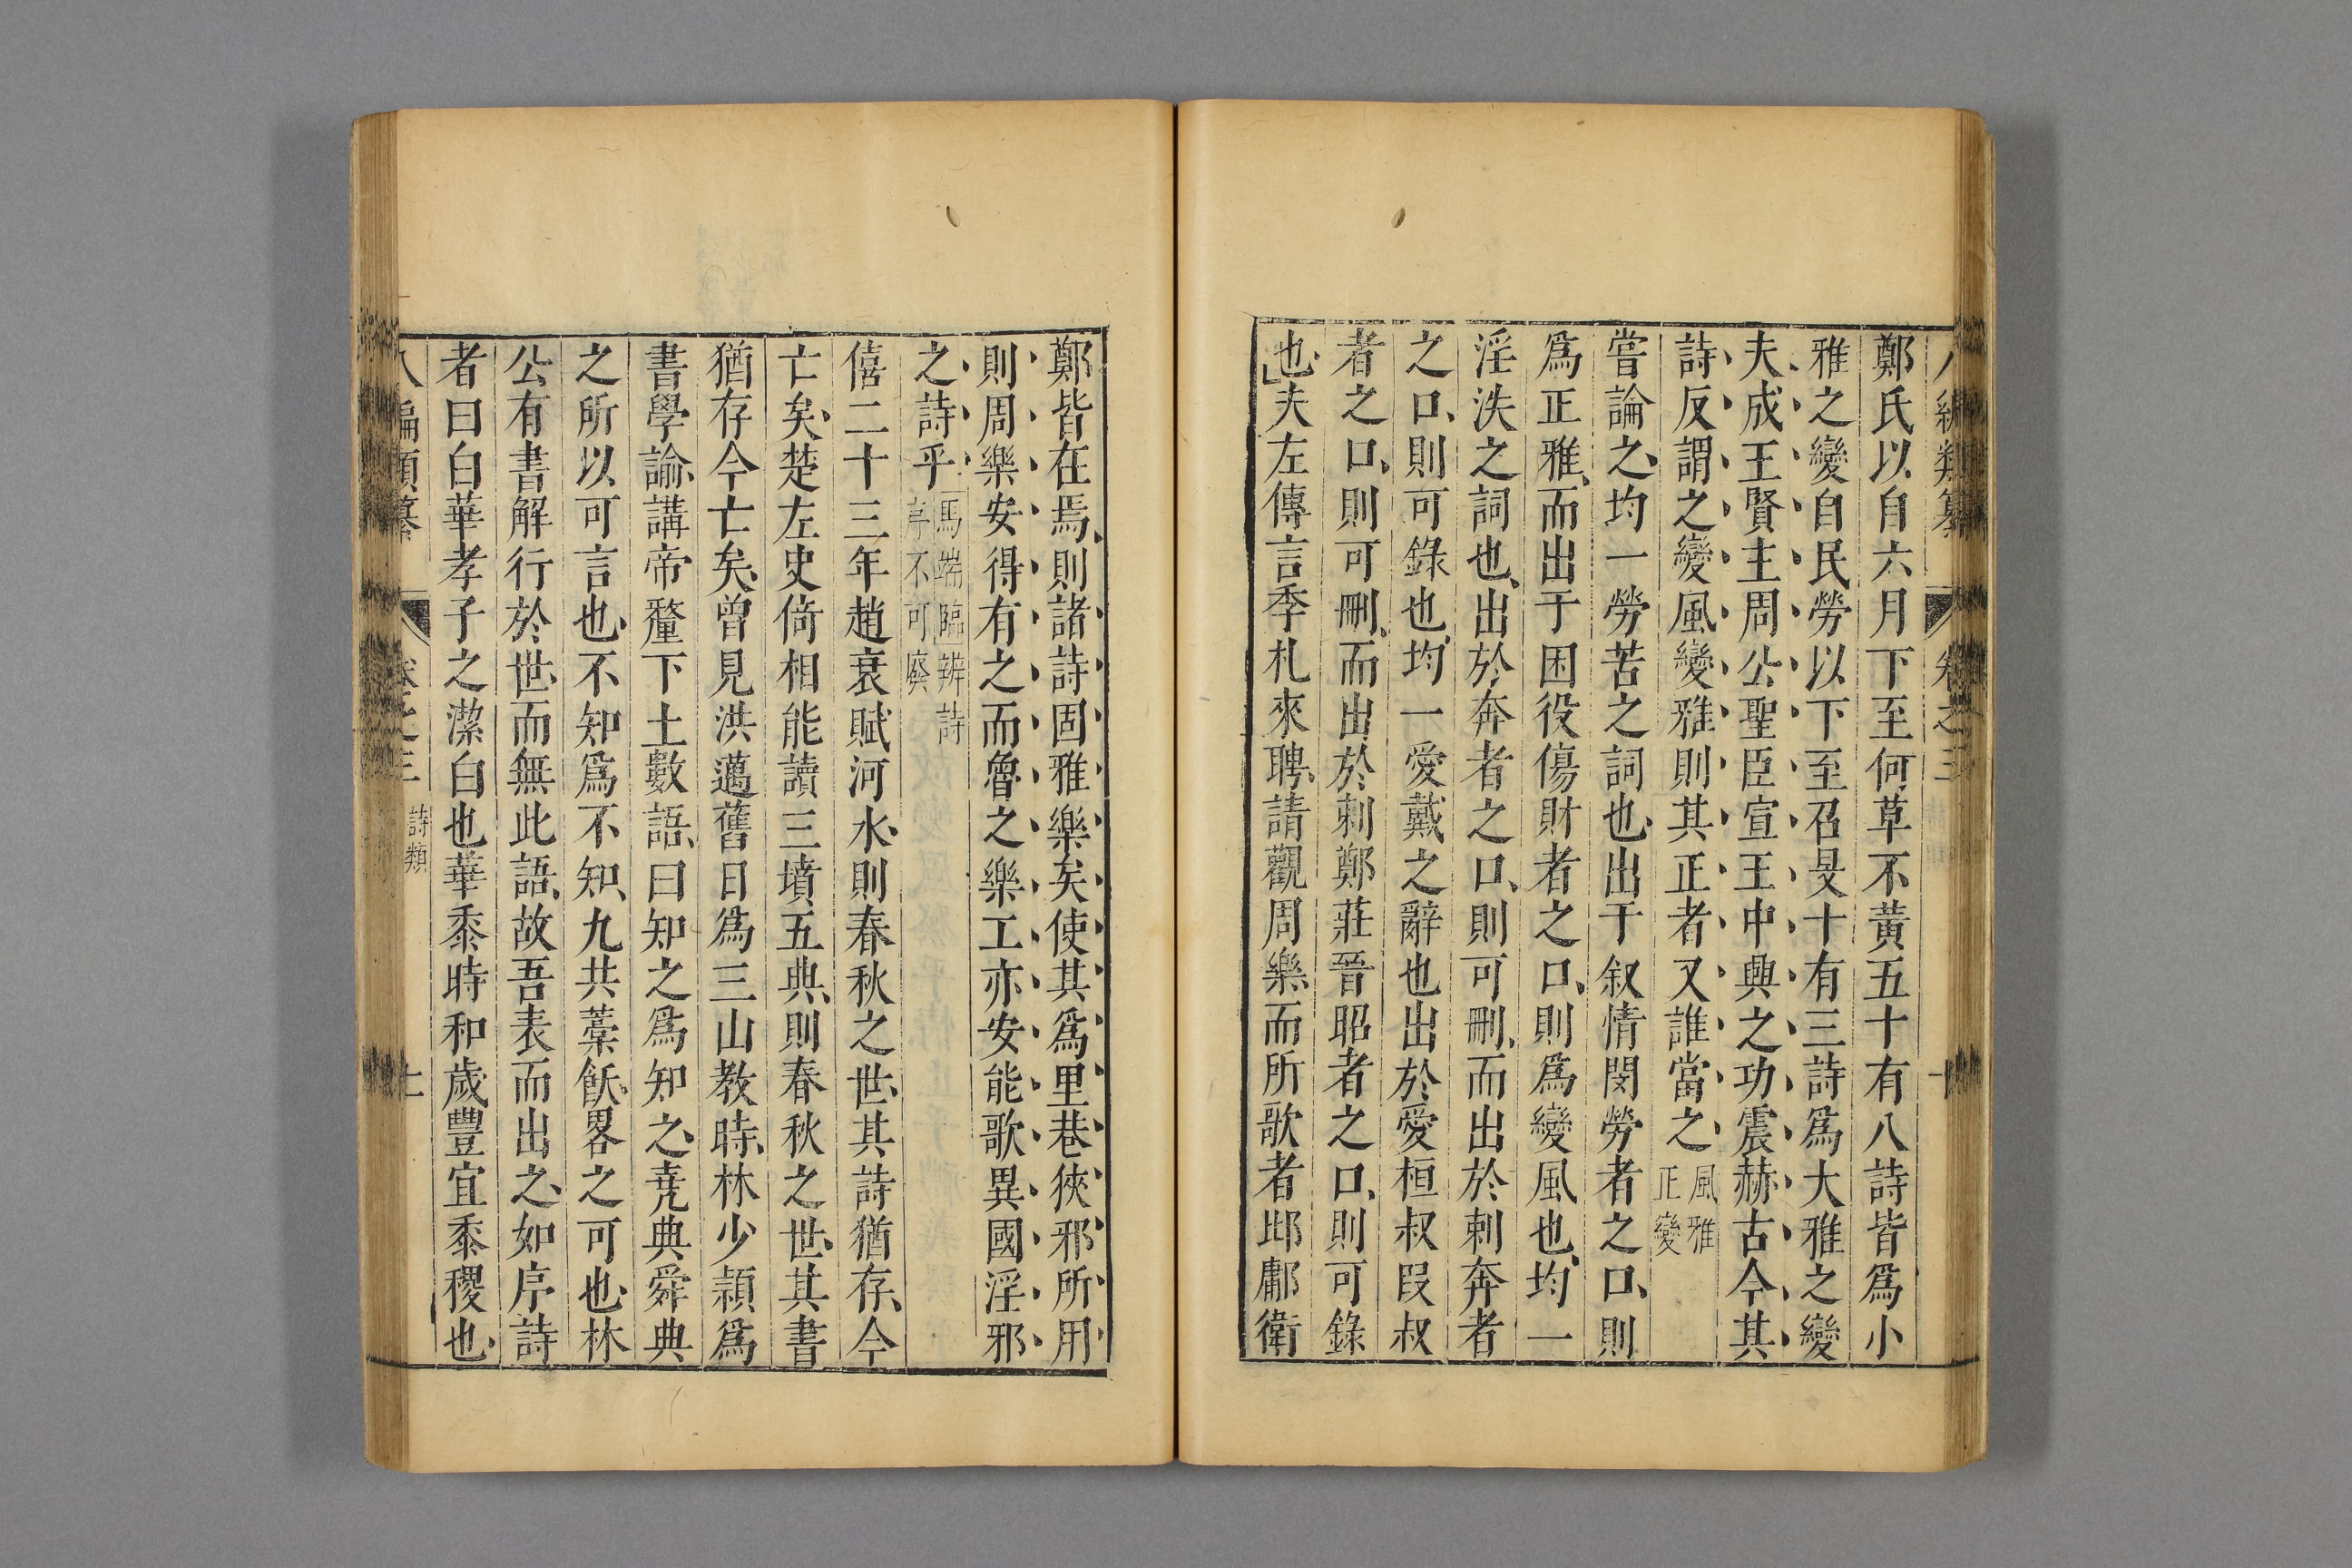 八編類纂 卷之三 十
鄭氏以自六月下至何草不黄五十有八詩皆爲小
雅之變自民勞以下至召旻十有三詩爲大雅之變
夫成王賢主周公聖臣宣王中興之功震赫古今其
詩反謂之變風變雅則其正者又誰當之 風雅
正變
嘗論之均一勞苦之詞也出于叙情閔勞者之口則
爲正雅而出于困役傷財者之口則爲變風也均一
淫泆之詞也出於奔者之口則可刪而出於刺奔者
之口則可錄也均一愛戴之辭也出於愛桓叔叚叔
者之口則可刪而出於刺鄭莊晉昭者之口則可錄
也夫左傳言季札來聘請觀周樂而所歌者邶鄘衛
鄭皆在焉則諸詩固雅樂矣使其爲里巷狹邪所用
則周樂安得有之而魯之樂工亦安能歌異國淫邪
之詩乎 馬端臨辨詩
序不可廢
僖二十三年趙衰賦河水則春秋之世其詩猶存今
亡矣楚左史倚相能讀三墳五典則春秋之世其書
猶存今亡矣曾見洪邁舊日爲三山教時林少頴爲
書學諭講帝釐下土數語曰知之爲知之堯典舜典
之所以可言也不知爲不知九共藁飫畧之可也林
公有書解行於世而無此語故吾表而出之如序詩
者曰白華孝子之潔白也華黍時和歲豐宜黍稷也
八編類纂 卷之三 詩類 十一